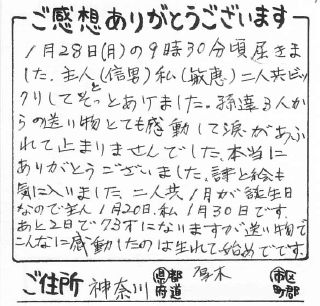 ご感想ありがとうございます
1月28日(月)の9時30分頃届きま
した、主人(信男)私(敏恵)二人共ビッ
クリしてそっとあけました。孫達3人か
らの送り物とても感動して涙があふ
れて止まりませんでした、本当に
ありがとうございました、詩と絵も
気に入りました、二人共1月が誕生日
なので主人1月20日、私1月30日です
あと2日で73才になりますが送り物で
こんなに感動したのは生れて始めてです。
ご住所 神奈川 都道府県 厚木 市区町郡